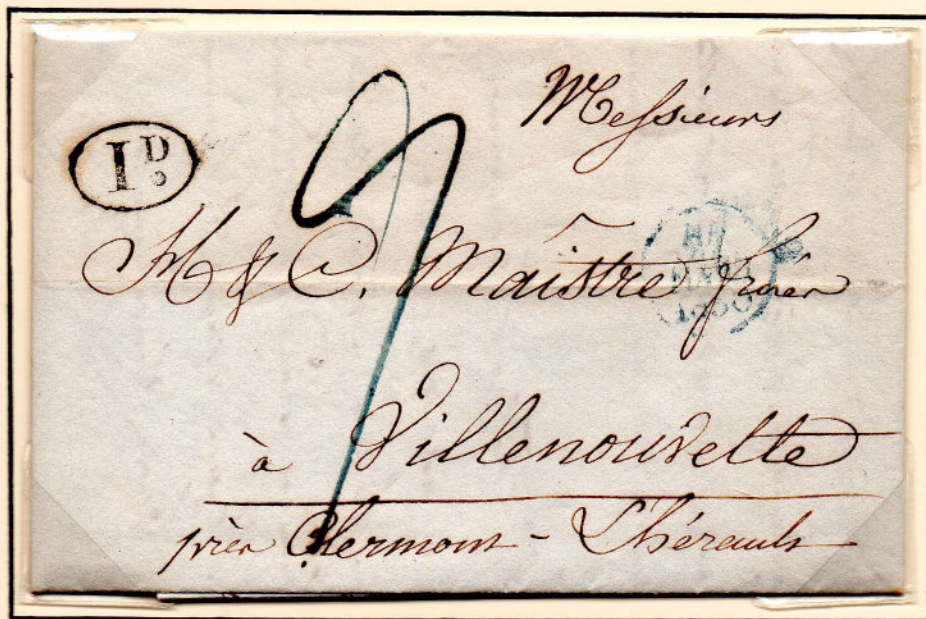 Messieurs
1D
H & C. Maistre frères
à Villenouvette
près Clermont - L'hérault